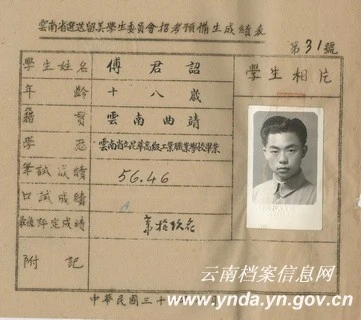 雲南省選送留美學生委員會招考預備生成績表
第31號
學生姓名 傅君詔
學生相片
年齡 十八歲
籍貫 雲南曲靖
學歷 雲南省立昆華高級工業職業學校畢業
筆試成績 56.46
口試成績
最後評定成績 第拾玖名
附記
中華民國三十
云南档案信息网
www.ynda.yn.gov.cn